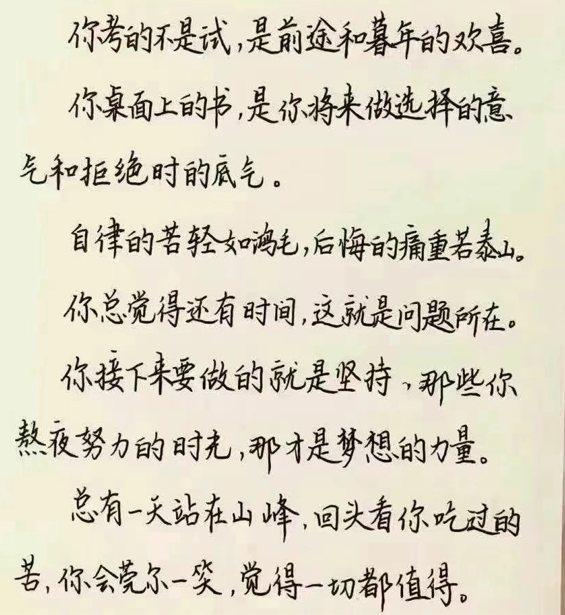 你考的不是试,是前途和暮年的欢喜。
你桌面上的书,是你将来做选择的意
气和拒绝时的底气。
自律的苦轻如鸿毛,后悔的痛重若泰山。
你总觉得还有时间,这就是问题所在。
你接下来要做的就是坚持、那些你
熬夜努力的时光,那才是梦想的力量。
总有一天站在山峰,回头看你吃过的
苦,你会莞尔一笑,觉得一切都值得。